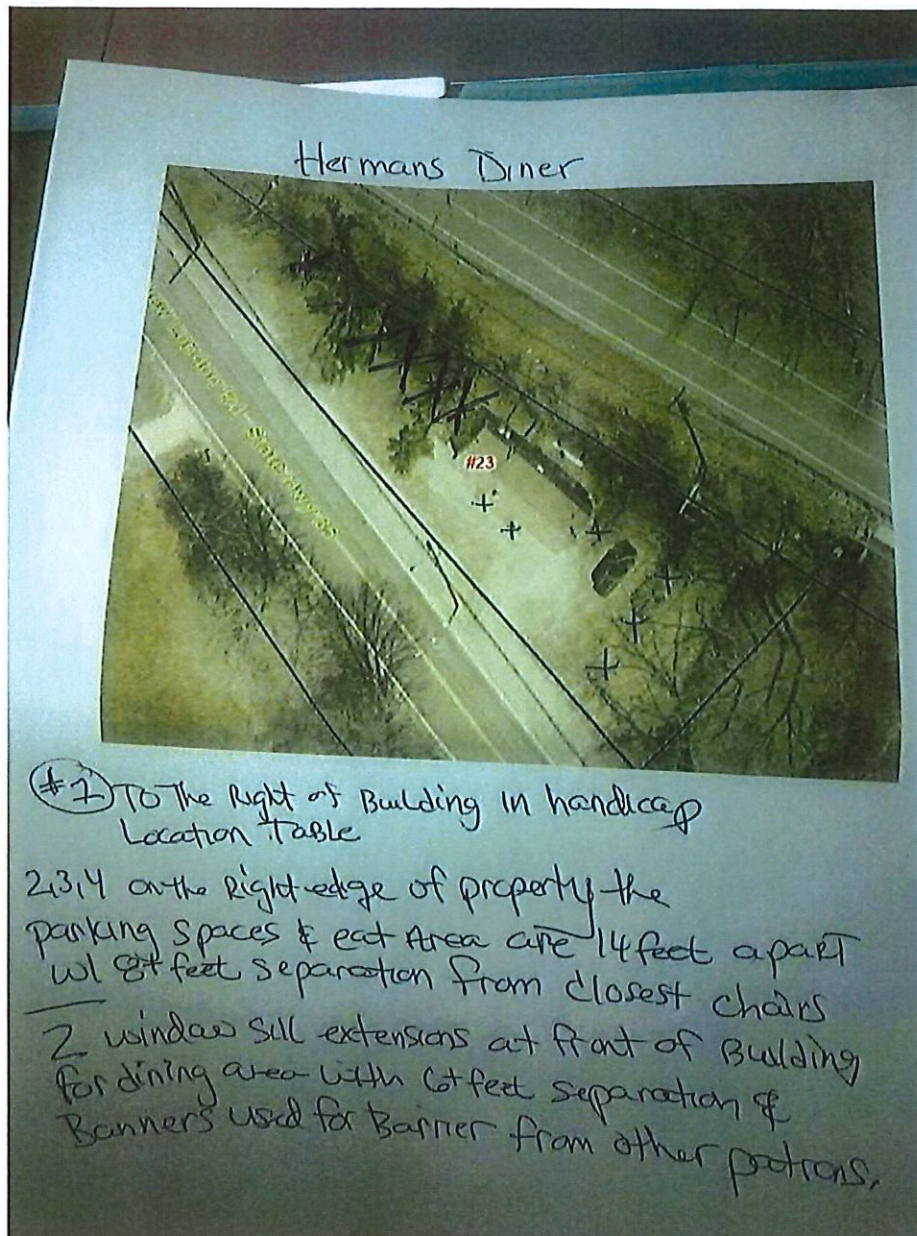 Hermans Diner
State Hwy 85
#23
#1 To The Right of Building in handicap
Location Table
2,3,4 on the Right edge of property the
parking spaces & eat Area are 14 feet apart
w/ 8+ feet separation from closest chairs
2 window sill extensions at front of Building
for dining area with 6+ feet separation &
Banners used for Barrier from other patrons.